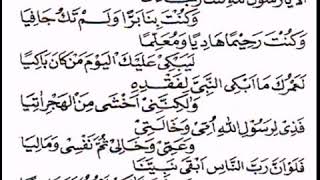 الَا يَارَسُولَ اللهِ
وَكُنْتَ بِنَا بَرًّا وَلَمْ تَكُ جَافِيًا
وَكُنْتَ رَحِيْمًا هَادِيًا وَمُعَلِّمًا
لَيَبْكِي عَلَيْكَ الْيَوْمَ مَنْ كَانَ بَاكِيًا
لَعَمْرُكَ مَا اَبْكِي النَّبِيَّ لِفَقْدِهِ
وَلٰكِنَّنِي اَخْشَى مِنَ الْهَجْرِ اٰتِيَا
فِدًى لِرَسُولِ اللهِ اُمِّي وَخَالَتِي
وَعَمِّي وَخَالِي ثُمَّ نَفْسِي وَمَالِيَا
فَلَوْ اَنَّ رَبَّ النَّاسِ اَبْقَى نَبِيَّنَا